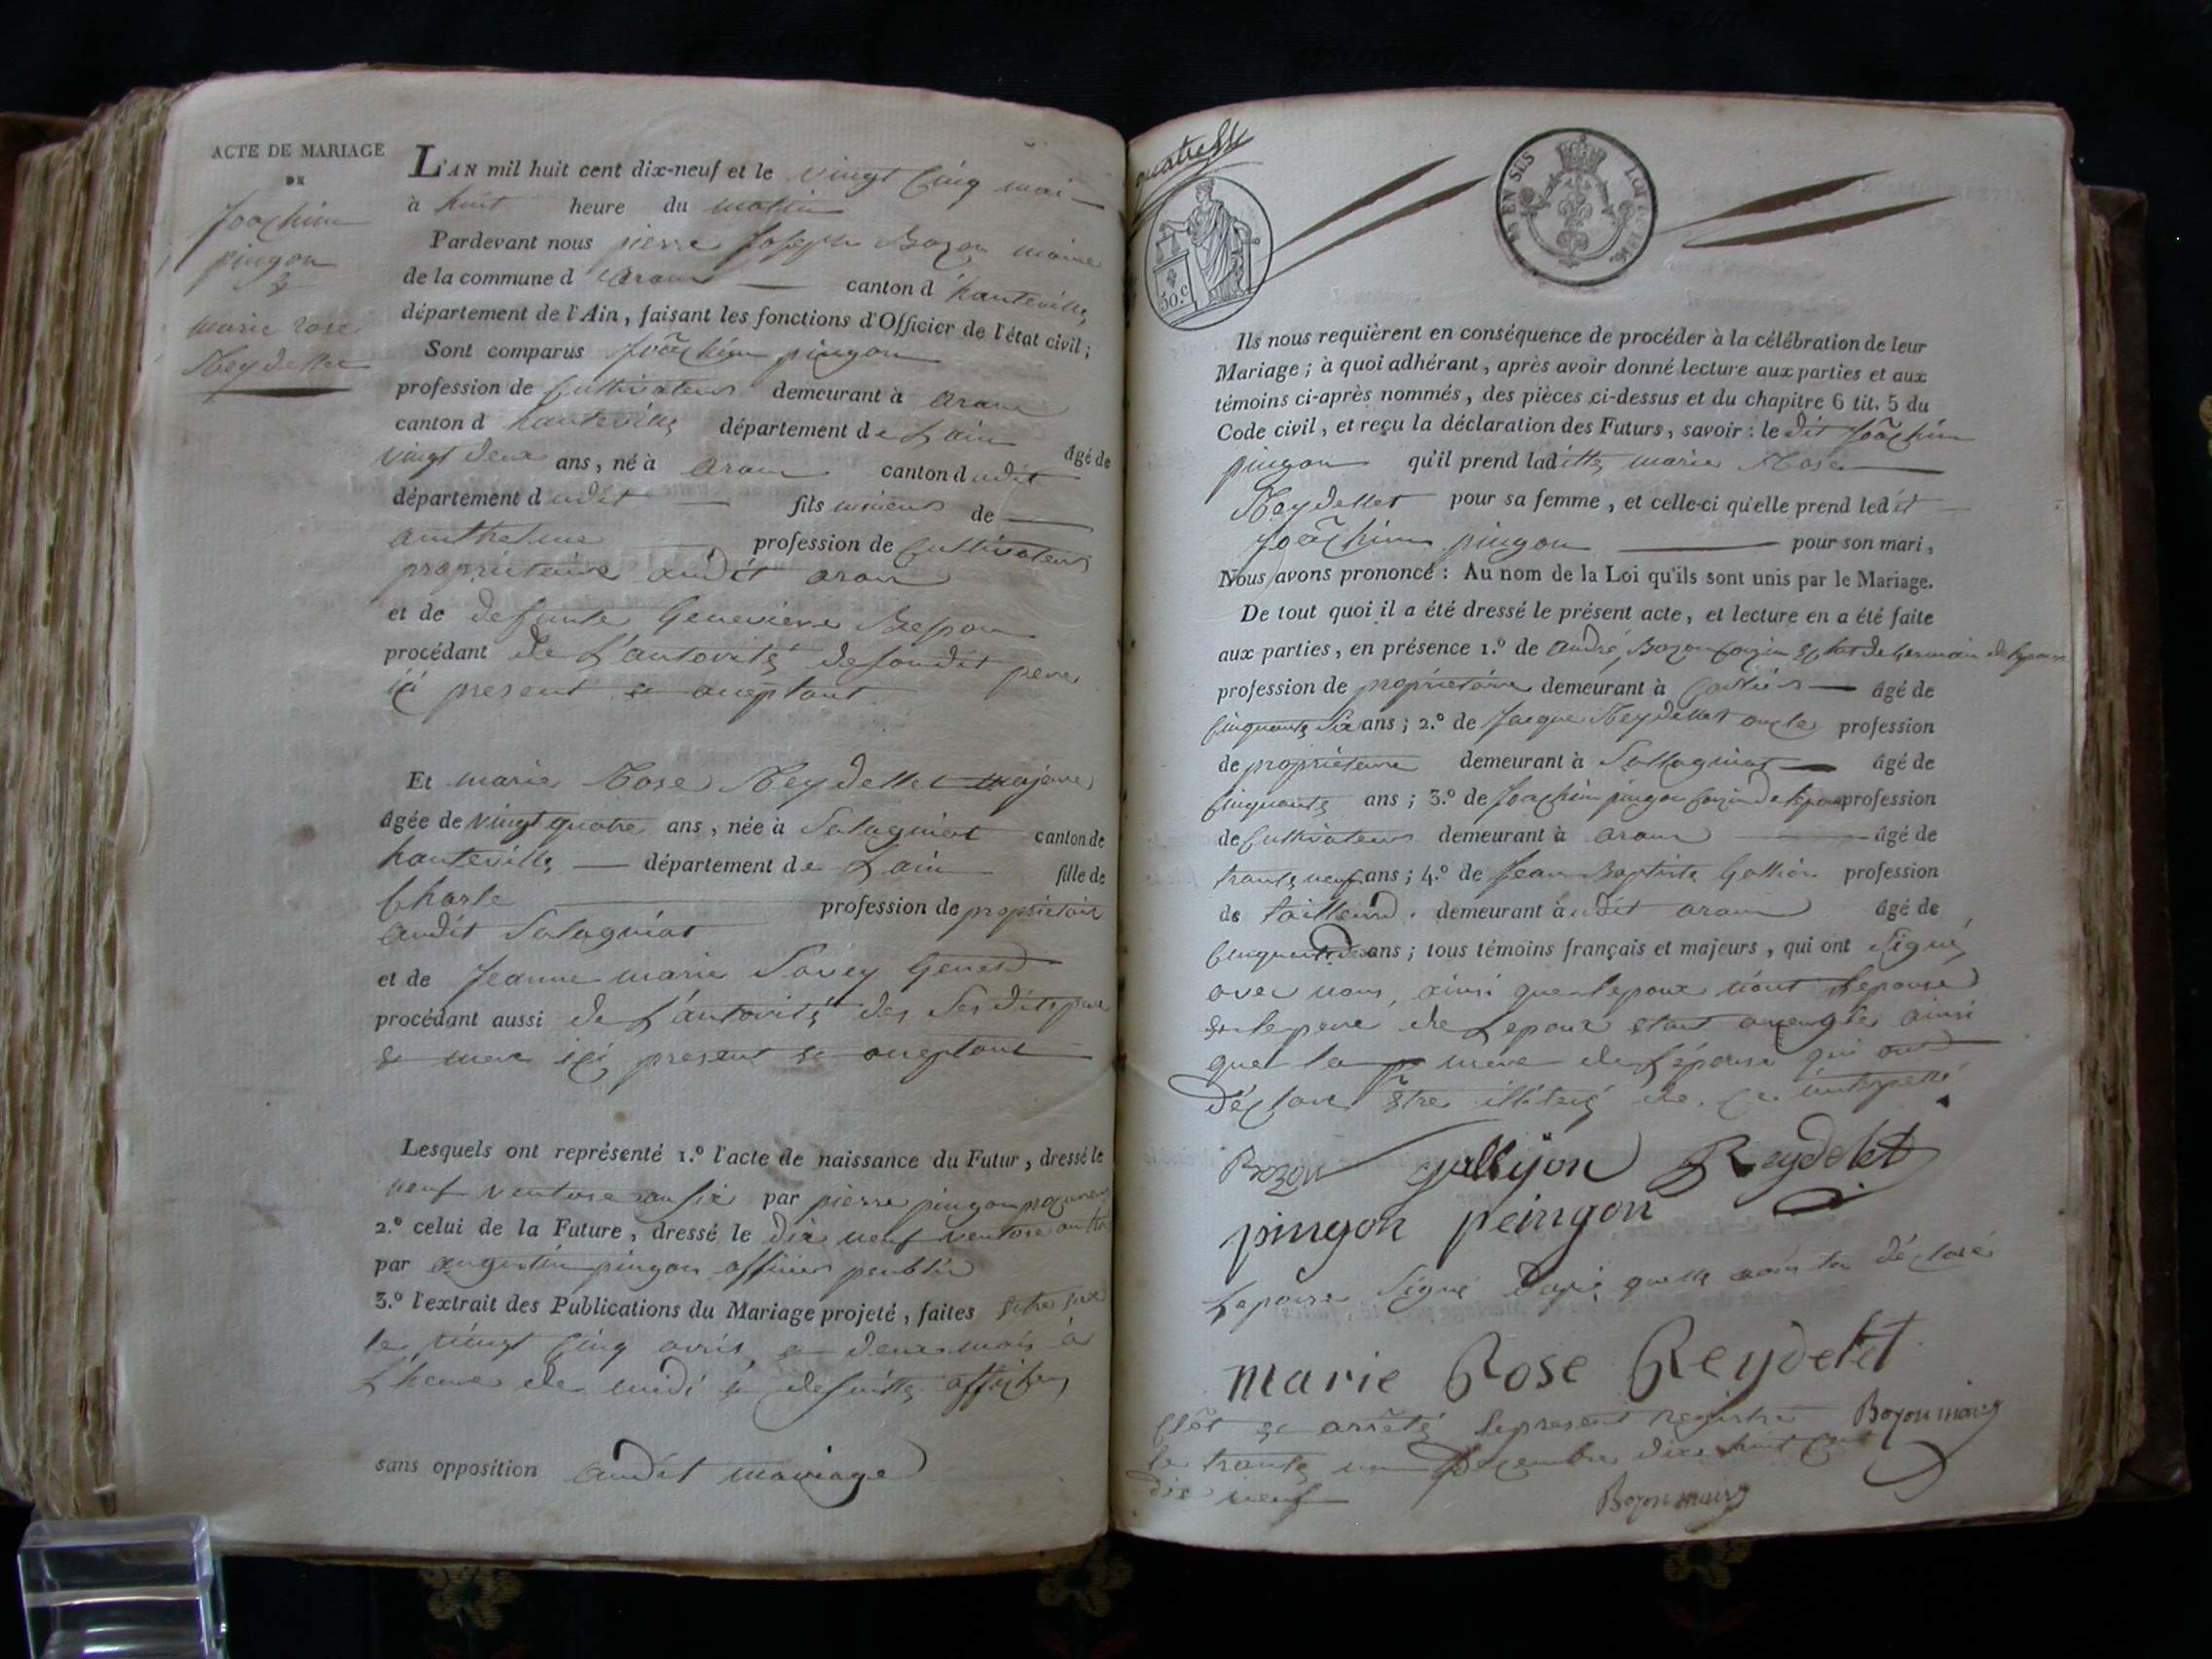 ACTE DE MARIAGE
DE
Joachim
pingon
&
marie rose
Reydellet
L'AN mil huit cent dix-neuf et le vingt cinq mai
à huit heure du matin
Pardevant nous pierre Joseph Bozon maire
de la commune d aran canton d hauteville
département de l'Ain, faisant les fonctions d'Officier de l'état civil;
Sont comparus Joâchim pingon
profession de Cultivateur demeurant à aran
canton d hauteville département de Lain âgé de
vingt deux ans, né à aran canton dudit
département dudit fils mineur de
anthelme profession de Cultivateur
propriétaire audit aran
et de defunte Genevieve
procédant de Lautorité desondit pere
ici present & aceptant
Et marie Rose Reydellet majeure
âgée de vingt quatre ans, née à Salagniat canton de
hauteville département de Lain fille de
Charle profession de propriétaire
audit Salagniat
et de Jeanne marie Savey
procédant aussi de Lautorité des Sesdits pere
& mere ici present & aceptant
Lesquels ont représenté 1.º l'acte de naissance du Futur, dressé le
neuf ventose an six par pierre pingon
2.º celui de la Future, dressé le dix neuf ventose an
par augustin pingon officier public
3.º l'extrait des Publications du Mariage projeté, faites
le vingt cinq avril & deux mai à
Lheure de midi & desuitte affiches
sans opposition audit mariage
50.c
LOI 1816
Ils nous requièrent en conséquence de procéder à la célébration de leur
Mariage; à quoi adhérant, après avoir donné lecture aux parties et aux
témoins ci-après nommés, des pièces ci-dessus et du chapitre 6 tit. 5 du
Code civil, et reçu la déclaration des Futurs, savoir: le dit Joâchim
pingon qu'il prend laditte marie Rose
Reydellet pour sa femme, et celle-ci qu'elle prend ledit
Joâchim pingon pour son mari,
Nous avons prononcé: Au nom de la Loi qu'ils sont unis par le Mariage.
De tout quoi il a été dressé le présent acte, et lecture en a été faite
aux parties, en présence 1.º de andré Bozon germain
profession de propriétaire demeurant à âgé de
Cinquante six ans; 2.º de Jacque Reydellet oncle profession
de propriétaire demeurant à Sallagniat âgé de
Cinquante ans; 3.º de Joachim pingon Cousin de lepoux profession
de Cultivateur demeurant à aran âgé de
trante neuf ans; 4.º de Jean Baptiste profession
de tailleur demeurant audit aran âgé de
ans; tous témoins français et majeurs, qui ont signé
avec nous, ainsi que lepoux nont Lepouse
& le pere de Lepoux etant aveugle ainsi
que la mere de Lépouse qui ont
déclaré être illiteré de ce interpellé
Bozon gallyon Reydelet
pingon peingon
Lepouse signé quelle déclaré
marie Rose Reydelet
Clôt & arrêté le present registre Bozon maire
le trante un decembre dixe huit cent
dix neuf Bozon maire